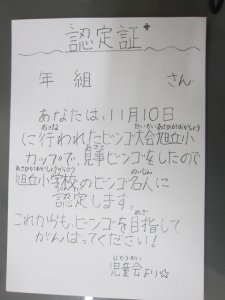 認定証
年 組 さん
あなたは、11月10日
に行われたビンゴ大会旭丘小
カップで、見事ビンゴをしたので
旭丘小学校のビンゴ名人に
認定します。
これからも、ビンゴを目指して
がんばってください!
児童会より☆